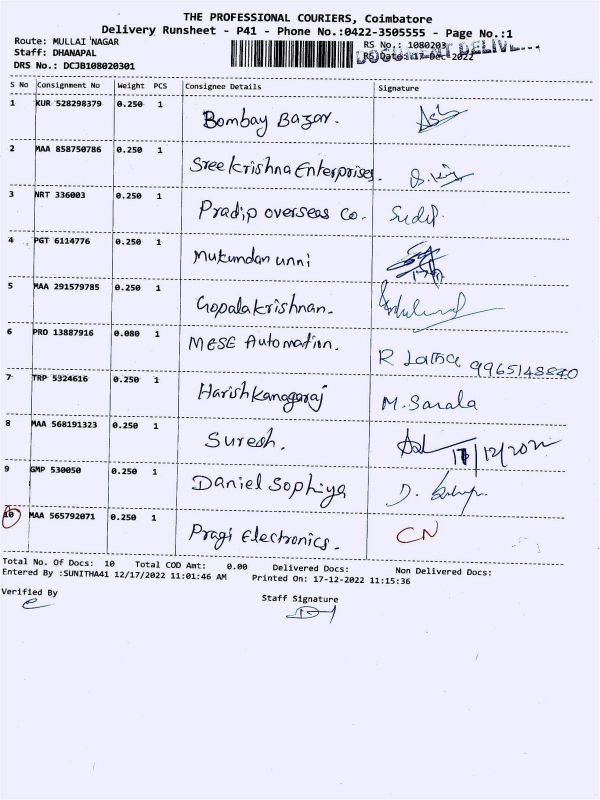 THE PROFESSIONAL COURIERS, Coimbatore
Delivery Runsheet - P41 - Phone No.:0422-3505555 - Page No.:1
Route: MULLAI NAGAR
RS No.: 1080203
Staff: DHANAPAL
RS Date: 17-Dec-2022
DOCUMENT DELIV
DRS No.: DCJB108020301
S No Consignment No Weight PCS Consignee Details Signature
1 KUR 528298379 0.250 1 Bombay Bazar.
2 MAA 858750786 0.250 1 Sree Krishna Enterprises.
3 NRT 336003 0.250 1 Pradip overseas Co. Sudip.
4 PGT 6114776 0.250 1 Mukundan unni
5 MAA 291579785 0.250 1 Gopalakrishnan.
6 PRD 13887916 0.080 1 MESE Automation. R Latha 9965148840
7 TRP 5324616 0.250 1 Harish Kanagaraj M. Sarala
8 MAA 568191323 0.250 1 Suresh. 17/12/2022
9 GMP 530050 0.250 1 Daniel Sophiya D.
10 MAA 565792071 0.250 1 Pragi Electronics. CN
Total No. Of Docs: 10 Total COD Amt: 0.00 Delivered Docs: Non Delivered Docs:
Entered By :SUNITHA41 12/17/2022 11:01:46 AM Printed On: 17-12-2022 11:15:36
Verified By
Staff Signature